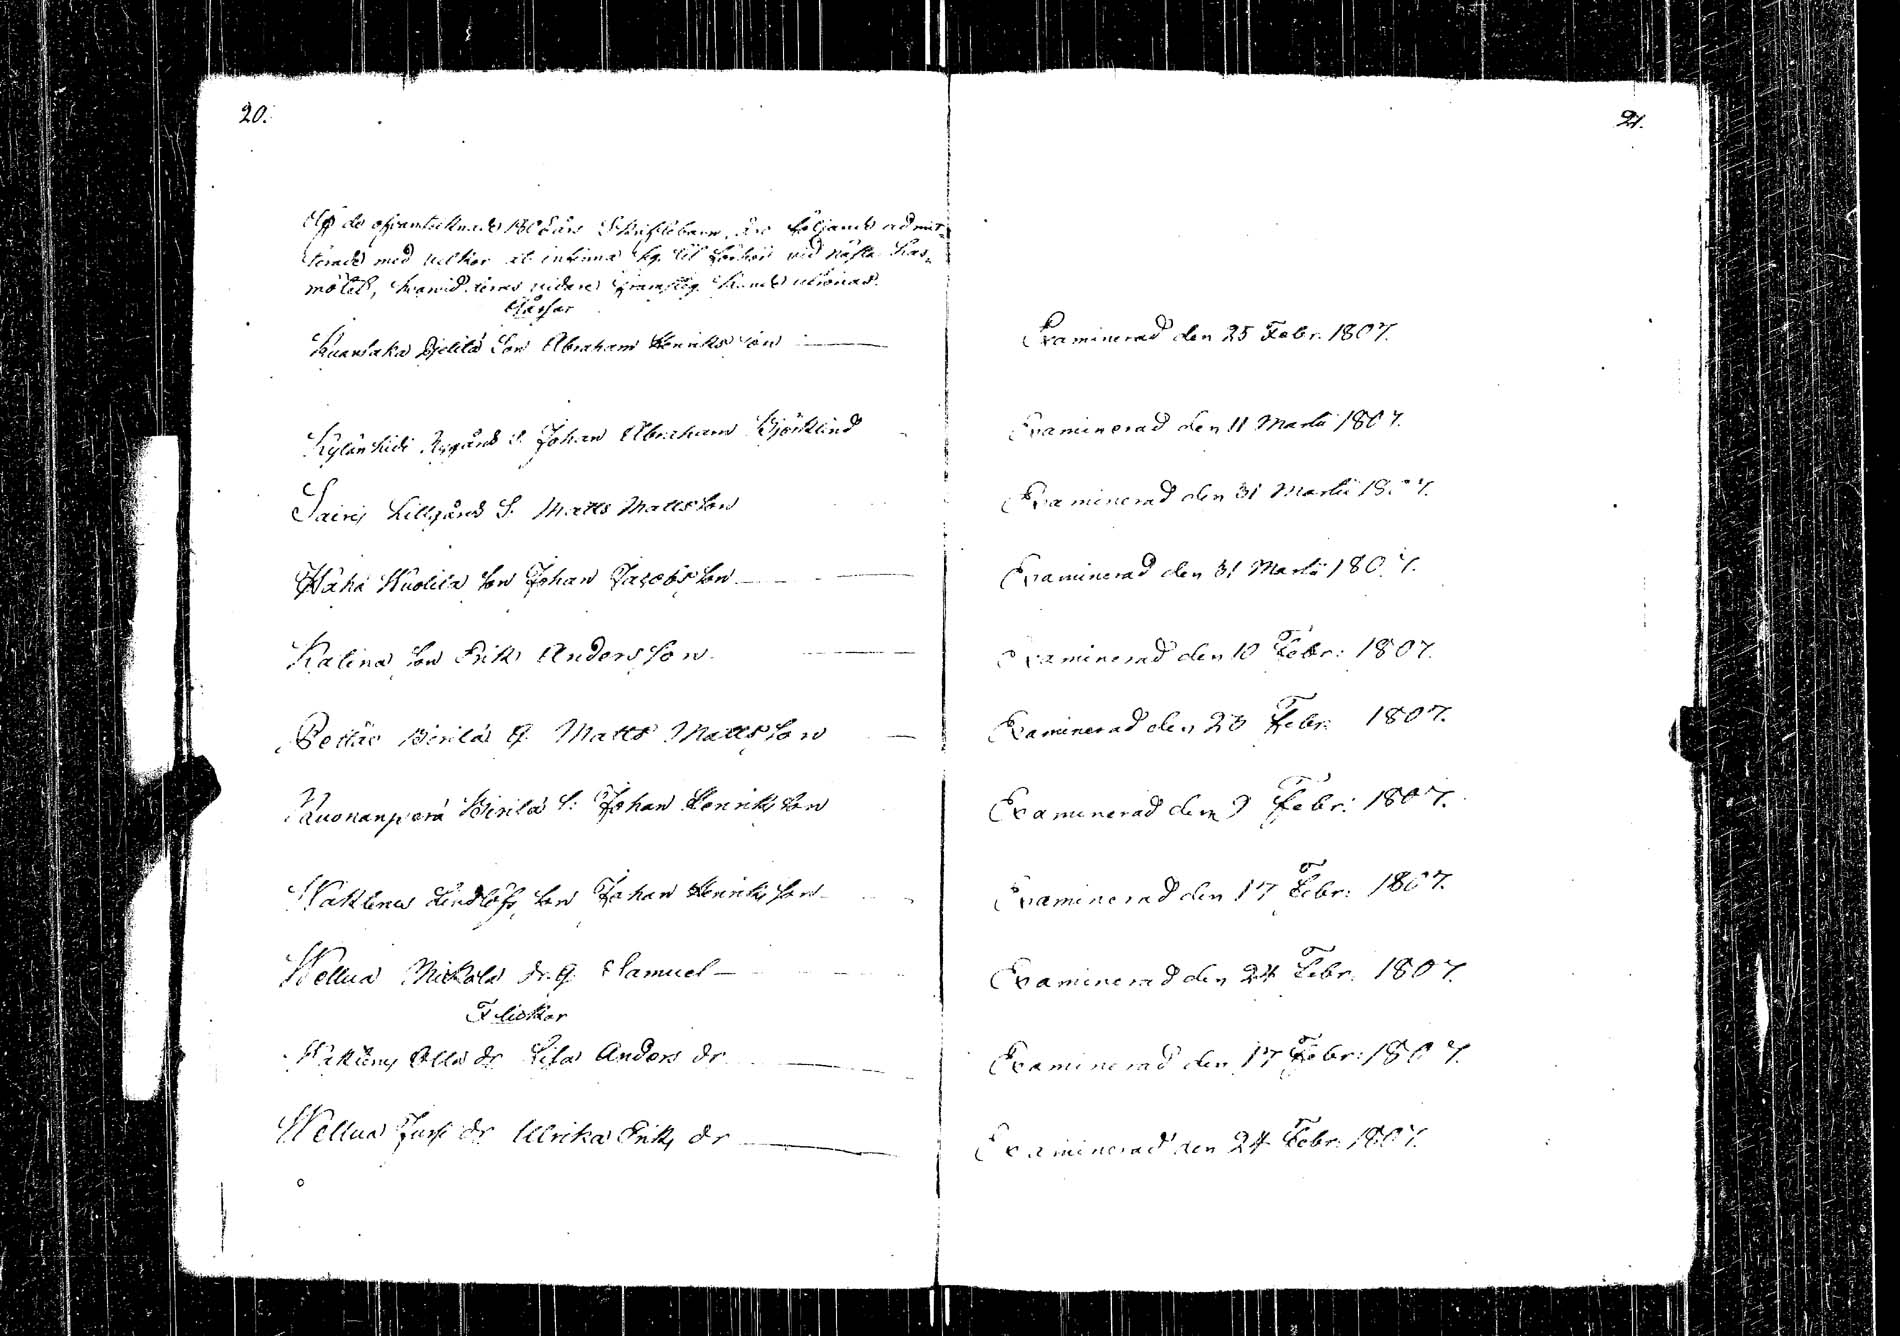 20.
Af de ofvantecknade 1806 års Skriftebarn, äro följande admit-
terade med vilkor at infinna sig til förhör vid nästa Läs-
mötet, hvarvid deras vidare framsteg skunde utrönas.
Gåssar
Kuansaka Son Abraham Henriks son
Kylänkidi Nygård S. Johan Abraham Björklind
Sairij Lillgård S. Matts Mattsson
Wähä Kuolila Son Johan Jacobsson
Kalina Son Erik Andersson
Pettäe Birilä Matts Mattsson
Kuonanperä Birilä S: Johan Henriksson
Näkkinen Lindlöfs son Johan Henriksson
Wellua Nickola dr. Samuel
Flickor
Olla dr Lisa Anders dr
Wellua Jusi dr Ulrika Eriks dr
21.
Examinerad den 25 Febr. 1807.
Examinerad den 11 Martii 1807.
Examinerad den 31 Martii 1807.
Examinerad den 31 Martii 1807.
Examinerad den 10 Febr: 1807.
Examinerad den 23 Febr. 1807.
Examinerad den 9 Febr: 1807.
Examinerad den 17 Febr: 1807.
Examinerad den 24 Febr. 1807.
Examinerad den 17 Febr: 1807.
Examinerad den 24 Febr. 1807.